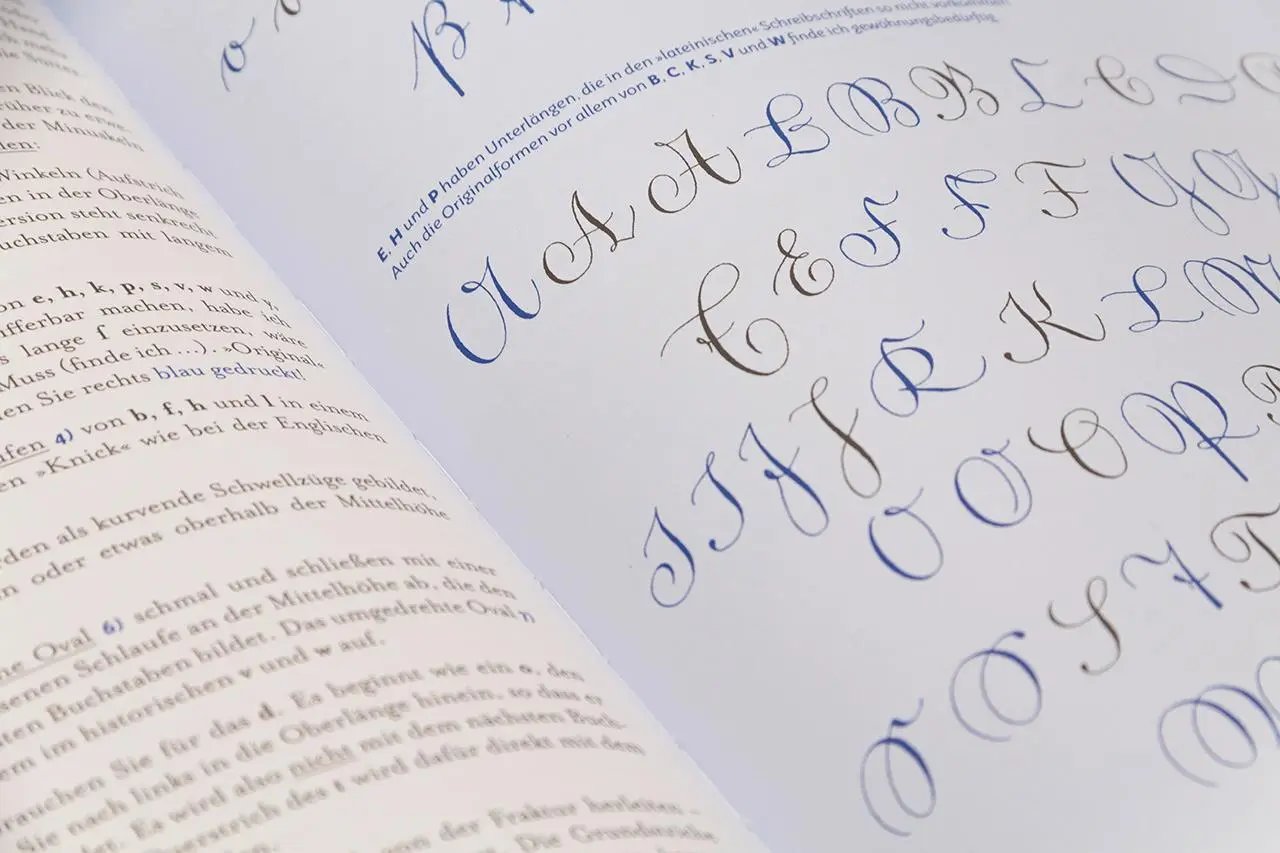 en Blick den
rüher zu erwe-
der Minuskeln
len:
Winkeln (Aufstrich
en in der Oberlänge
ersion steht senkrecht
uchstaben mit langem
on e, h, k, p, s, v, w und y,
ifferbar machen, habe ich
s lange f einzusetzen, wäre
Muss (finde ich …). »Original«
en Sie rechts blau gedruckt!
ufen 4) von b, f, h und l in einem
en »Knick« wie bei der Englischen
rden als kurvende Schwellzüge gebildet,
n oder etwas oberhalb der Mittelhöhe
ne Oval 6) schmal und schließen mit einer
senen Schlaufe an der Mittelhöhe ab, die den
ten Buchstaben bildet. Das umgedrehte Oval 7)
em im historischen v und w auf.
rauchen Sie für das d. Es beginnt wie ein o, den
Sie nach links in die Oberlänge hinein, so dass er
der. Es wird also nicht mit dem nächsten Buch-
erstrich des t wird dafür direkt mit dem
von der Fraktur herleiten –
Die Grundstriche
v
B
E, H und P haben Unterlängen, die in den »lateinischen« Schreibschriften so nicht vorkommen
Auch die Originalformen vor allem von B, C, K, S, V und W finde ich gewöhnungsbedürftig
A A A B B B C C D
E E F F F G G
I I J J K K L
O O O P
S T T